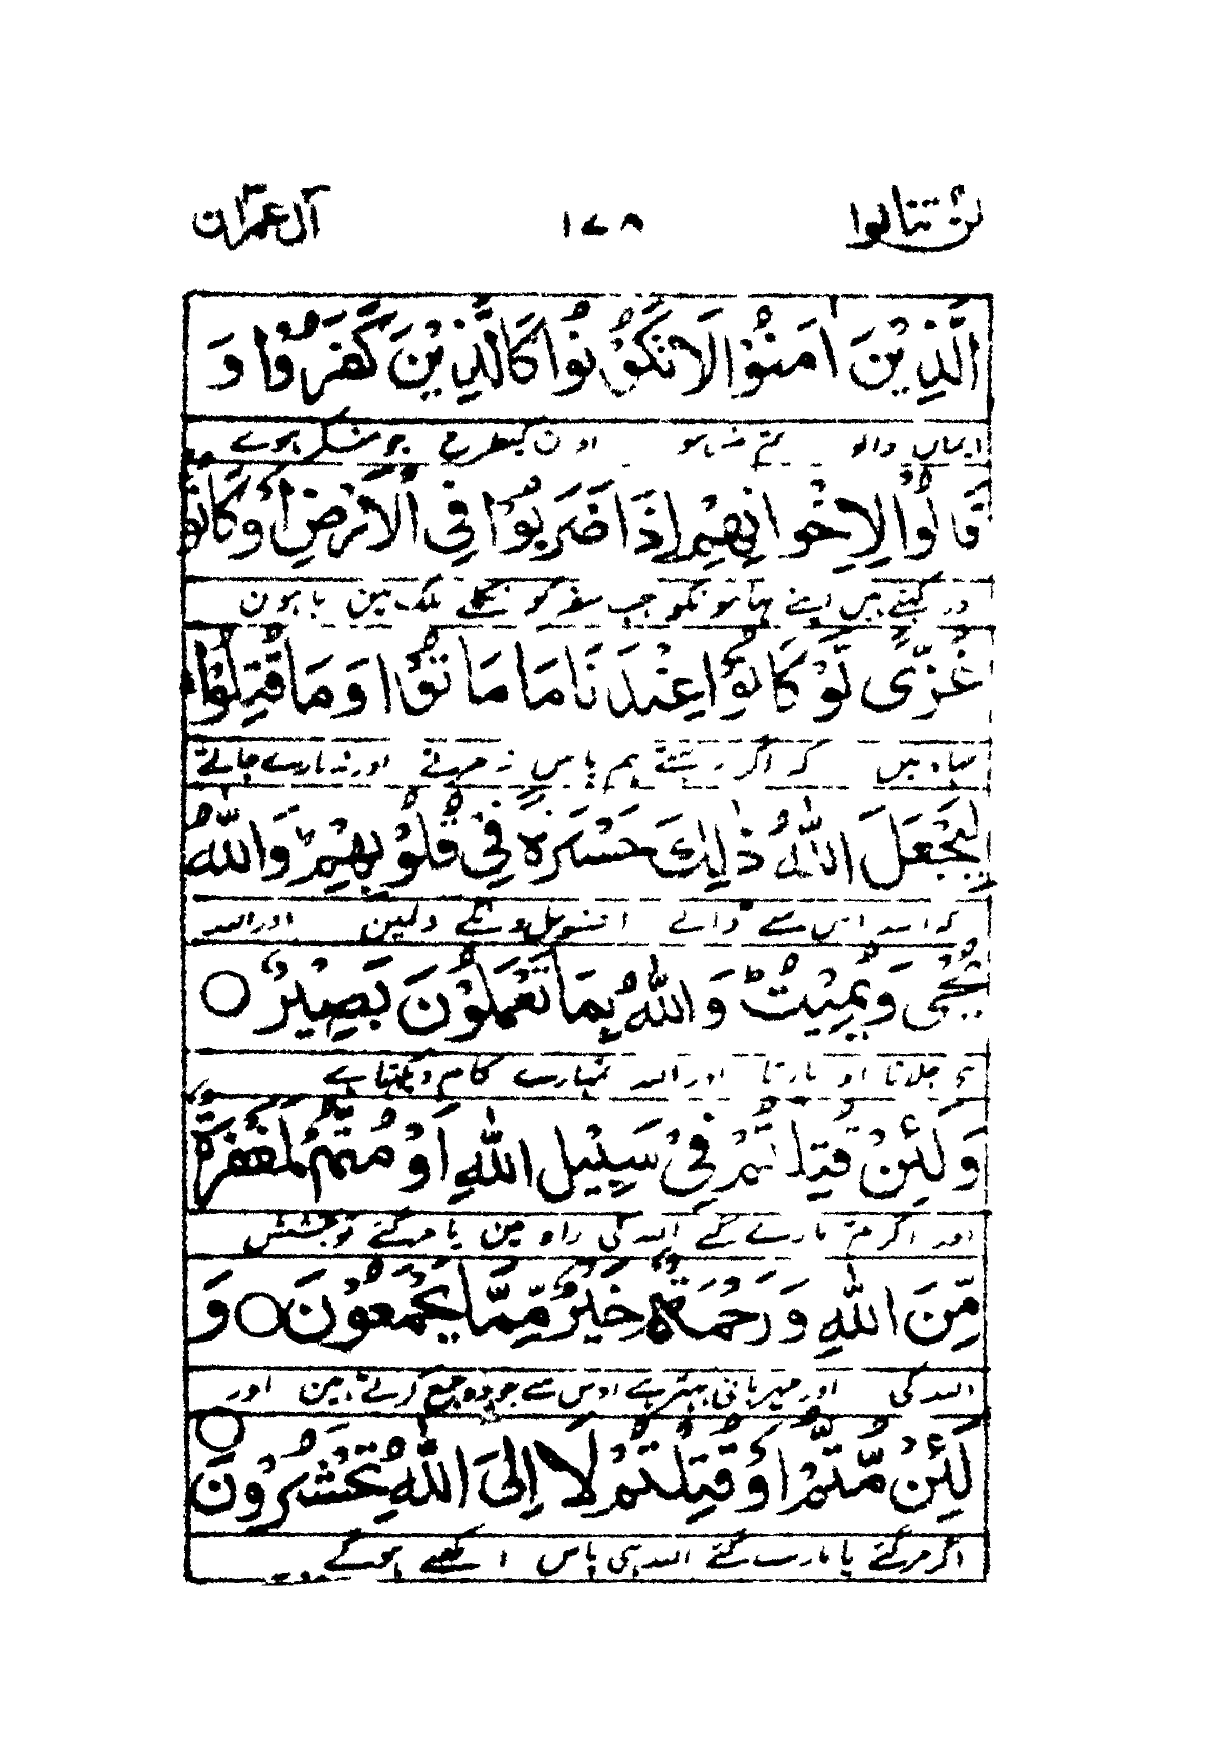 لن تنالوا ١٧٨ آل عمران
الَّذِيْنَ اٰمَنُوْا لَا تَكُوْنُوْا كَالَّذِيْنَ كَفَرُوْا وَ
ایمان والو تم نہ ہو اون کیطرح جو منکر ہوے
قَالُوْا لِاِخْوَانِهِمْ اِذَا ضَرَبُوْا فِى الْاَرْضِ اَوْ كَانُوْا
اور کہتے ہیں اپنے بھائیونکو جب سفر کو نکلے ملک مین یا ہون
غُزًّى لَّوْ كَانُوْا عِنْدَنَا مَا مَاتُوْا وَمَا قُتِلُوْا
جہاد میں کہ اگر رہتے ہم پاس نہ مرتے اور نہ مارے جاتے
لِيَجْعَلَ اللّٰهُ ذٰلِكَ حَسْرَةً فِىْ قُلُوْبِهِمْ وَاللّٰهُ
کہ اللہ اس سے ڈالے افسوس اونکے دلمین اور اللہ
يُحْىٖ وَيُمِيْتُ ط وَاللّٰهُ بِمَا تَعْمَلُوْنَ بَصِيْرٌ ○
ہی جلاتا اور مارتا اور اللہ تمہارے کام دیکھتا ہے
وَلَئِنْ قُتِلْتُمْ فِىْ سَبِيْلِ اللّٰهِ اَوْ مُتُّمْ لَمَغْفِرَةٌ
اور اگر تم مارے گئے اللہ کی راہ مین یا مر گئے تو بخشش
مِّنَ اللّٰهِ وَرَحْمَةٌ خَيْرٌ مِّمَّا يَجْمَعُوْنَ ○ وَ
اللہ کی اور مہربانی بہتر ہے اوس سے جو وہ جمع کرتے ہین اور
لَئِنْ مُّتُّمْ اَوْ قُتِلْتُمْ لَا اِلَى اللّٰهِ تُحْشَرُوْنَ ○
اگر مر گئے یا مارے گئے اللہ ہی پاس اکھٹے ہوگے